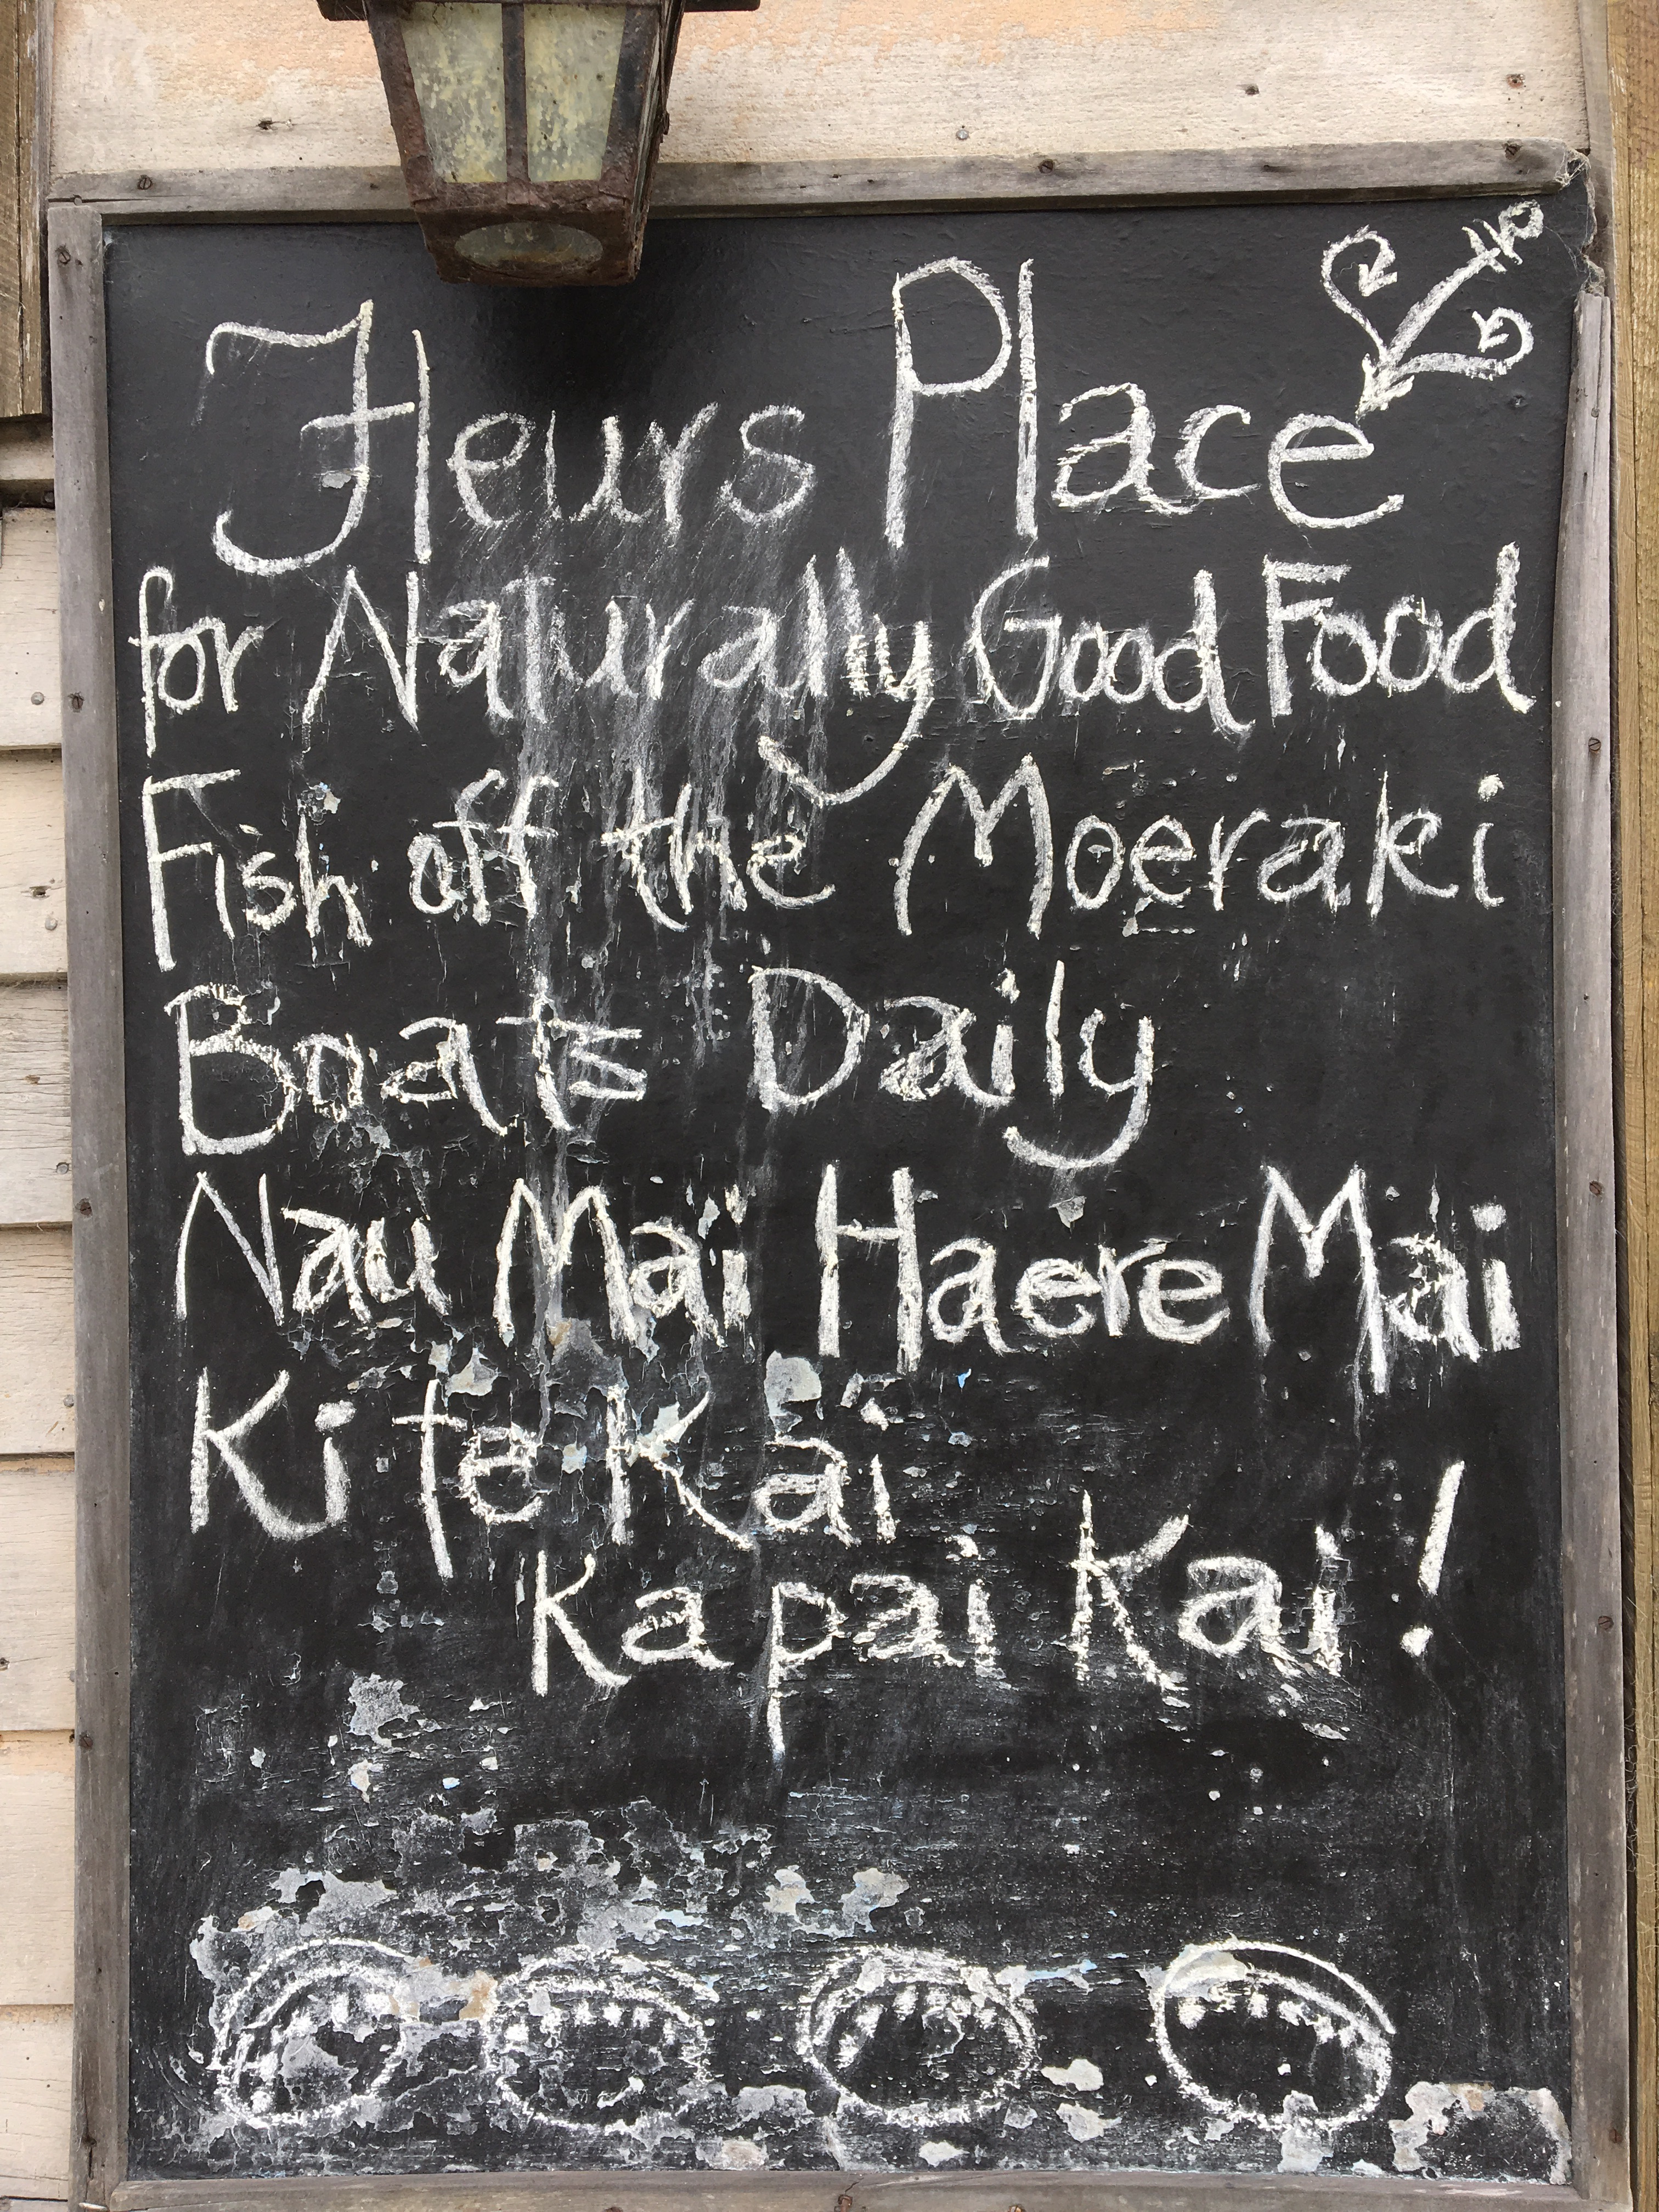 Fleurs Place
for Naturally Good Food
Fish off the Moeraki
Boats Daily
Nau Mai Haere Mai
Ki te Kai
Ka pai Kai!